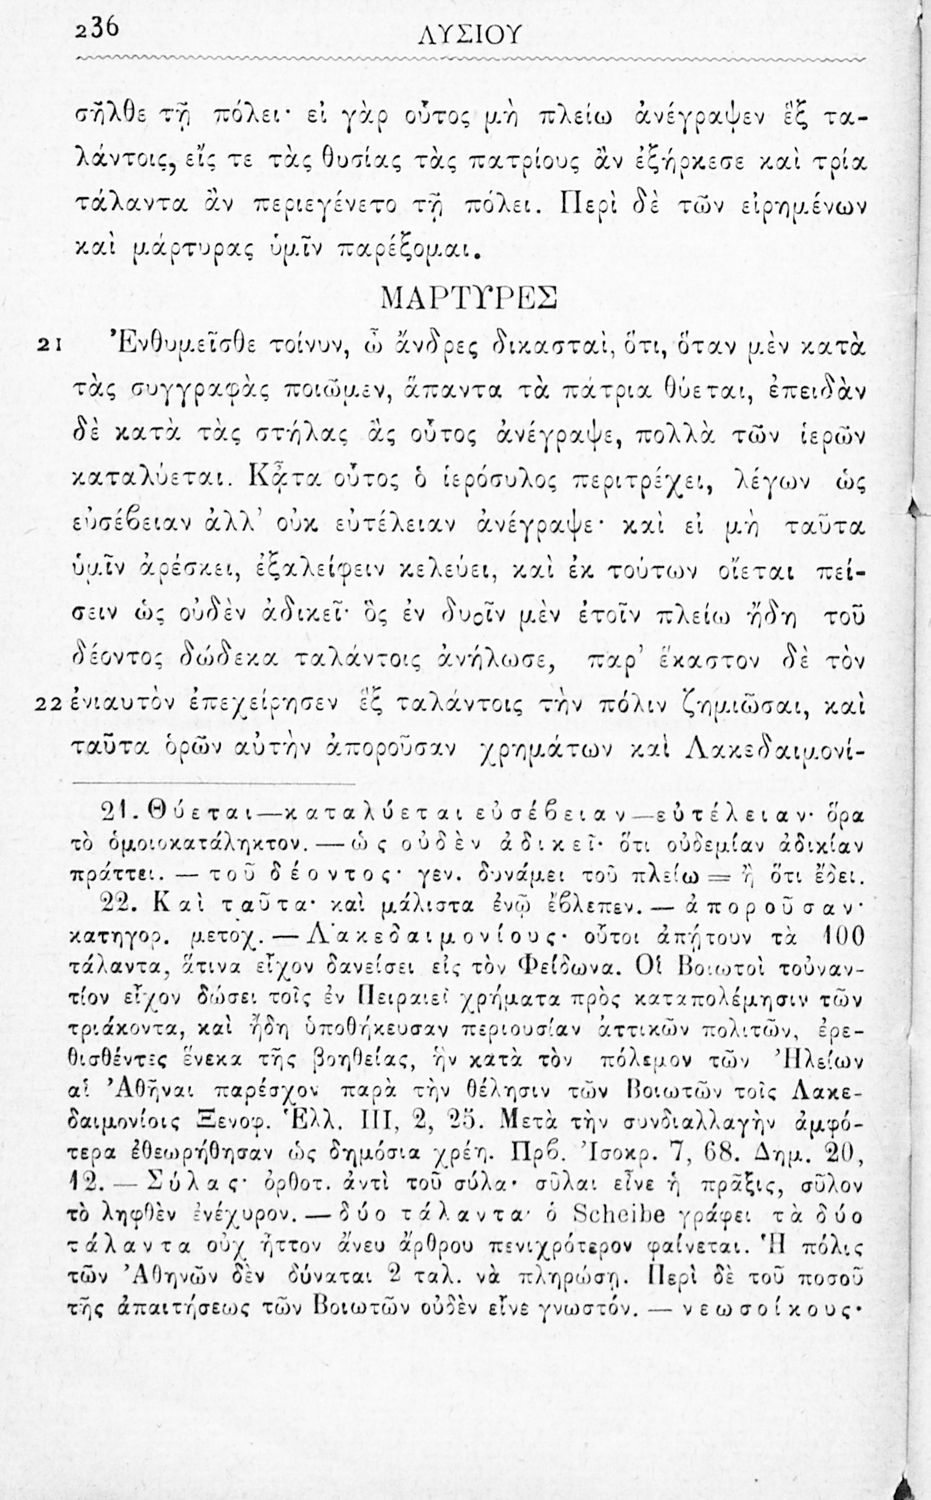 236
ΛΥΣΙΟΥ
σῆλθε τῇ πόλει· εἰ γὰρ οὗτος μὴ πλείω ἀνέγραψεν ἓξ τα-
λάντοις, εἴς τε τὰς θυσίας τὰς πατρίους ἂν ἐξήρκεσε καὶ τρία
τάλαντα ἂν περιεγένετο τῇ πόλει. Περὶ δὲ τῶν εἰρημένων
καὶ μάρτυρας ὑμῖν παρέξομαι.
ΜΑΡΤΥΡΕΣ
21 Ἐνθυμεῖσθε τοίνυν, ὦ ἄνδρες δικασταί, ὅτι, ὅταν μὲν κατὰ
τὰς συγγραφὰς ποιῶμεν, ἅπαντα τὰ πάτρια θύεται, ἐπειδὰν
δὲ κατὰ τὰς στήλας ἃς οὗτος ἀνέγραψε, πολλὰ τῶν ἱερῶν
καταλύεται. Κᾆτα οὗτος ὁ ἱερόσυλος περιτρέχει, λέγων ὡς
εὐσέβειαν ἀλλ' οὐκ εὐτέλειαν ἀνέγραψε· καὶ εἰ μὴ ταῦτα
ὑμῖν ἀρέσκει, ἐξαλείφειν κελεύει, καὶ ἐκ τούτων οἴεται πεί-
σειν ὡς οὐδὲν ἀδικεῖ· ὃς ἐν δυοῖν μὲν ἐτοῖν πλείω ἤδη τοῦ
δέοντος δώδεκα ταλάντοις ἀνήλωσε, παρ' ἕκαστον δὲ τὸν
22 ἐνιαυτὸν ἐπεχείρησεν ἓξ ταλάντοις τὴν πόλιν ζημιῶσαι, καὶ
ταῦτα ὁρῶν αὐτὴν ἀποροῦσαν χρημάτων καὶ Λακεδαιμονί-
21. Θύεται—καταλύεται εὐσέβειαν—εὐτέλειαν· ὅρα
τὸ ὁμοιοκατάληκτον. — ὡς οὐδὲν ἀδικεῖ· ὅτι οὐδεμίαν ἀδικίαν
πράττει. — τοῦ δέοντος· γεν. δυνάμει τοῦ πλείω = ἢ ὅτι ἔδει.
22. Καὶ ταῦτα· καὶ μάλιστα ἐνῷ ἔβλεπεν. — ἀποροῦσαν·
κατηγορ. μετοχ. — Λακεδαιμονίους· οὗτοι ἀπῄτουν τὰ 100
τάλαντα, ἅτινα εἶχον δανείσει εἰς τὸν Φείδωνα. Οἱ Βοιωτοὶ τοὐναν-
τίον εἶχον δώσει τοῖς ἐν Πειραιεῖ χρήματα πρὸς καταπολέμησιν τῶν
τριάκοντα, καὶ ἤδη ὑποθήκευσαν περιουσίαν ἀττικῶν πολιτῶν, ἐρε-
θισθέντες ἕνεκα τῆς βοηθείας, ἣν κατὰ τὸν πόλεμον τῶν Ἠλείων
αἱ Ἀθῆναι παρέσχον παρὰ τὴν θέλησιν τῶν Βοιωτῶν τοῖς Λακε-
δαιμονίοις Ξενοφ. Ἑλλ. III, 2, 25. Μετὰ τὴν συνδιαλλαγὴν ἀμφό-
τερα ἐθεωρήθησαν ὡς δημόσια χρέη. Πρβ. Ἰσοκρ. 7, 68. Δημ. 20,
12. — Σύλας· ὀρθοτ. ἀντὶ τοῦ σύλα· σῦλαι εἶνε ἡ πρᾶξις, σῦλον
τὸ ληφθὲν ἐνέχυρον. — δύο τάλαντα· ὁ Scheibe γράφει τὰ δύο
τάλαντα οὐχ ἧττον ἄνευ ἄρθρου πενιχρότερον φαίνεται. Ἡ πόλις
τῶν Ἀθηνῶν δὲν δύναται 2 ταλ. νὰ πληρώσῃ. Περὶ δὲ τοῦ ποσοῦ
τῆς ἀπαιτήσεως τῶν Βοιωτῶν οὐδὲν εἶνε γνωστόν. — νεωσοίκους·